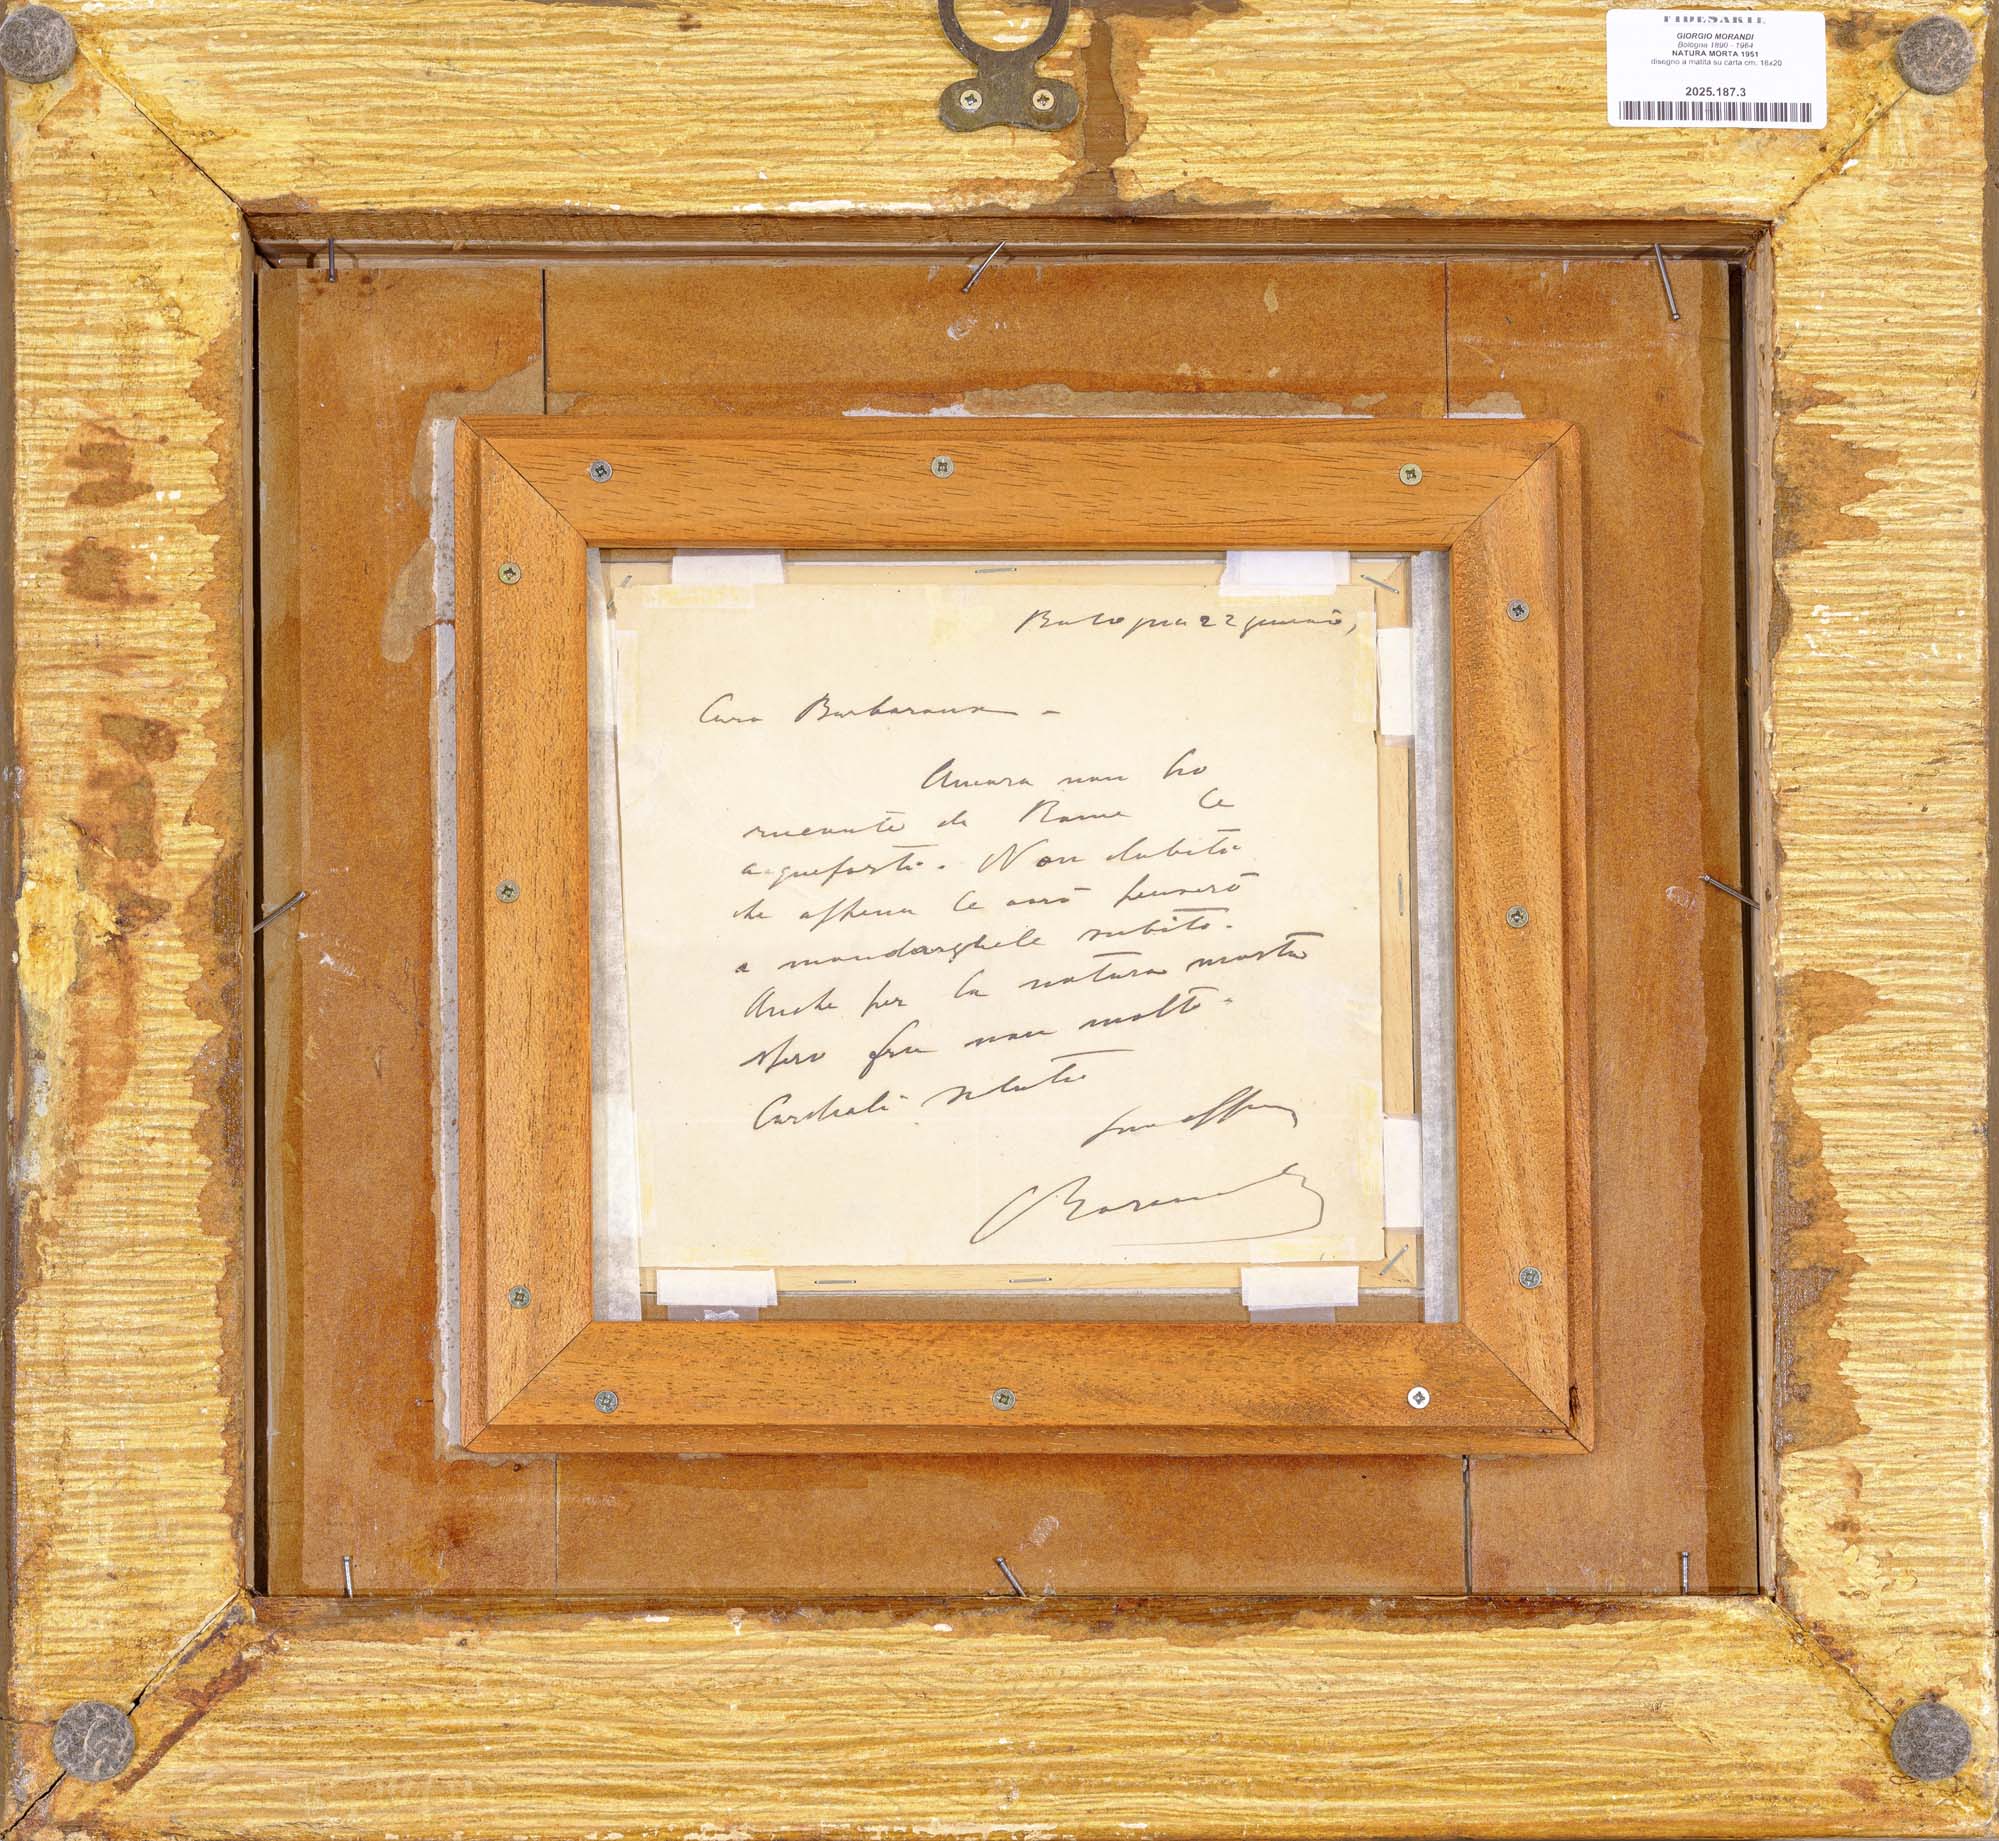 FIDESARTE
GIORGIO MORANDI
Bologna 1890 - 1964
NATURA MORTA 1951
disegno a matita su carta cm. 16x20
2025.187.3
Bologna 22 gennaio,
Caro Barbaroux -
Ancora non ho
ricevute da Roma le
acqueforti. Non dubiti
che appena le avrò penserò
a mandarghele subito.
Anche per la natura morta
spero fra non molto.
Cordiali saluti
suo aff
Morandi